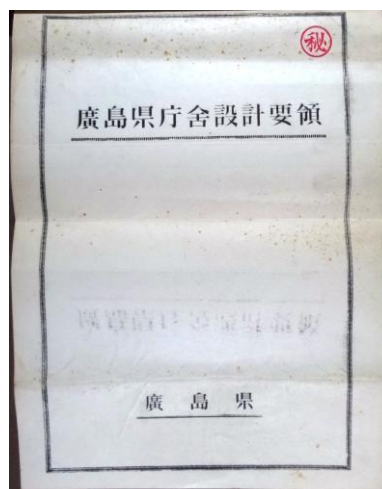 ㊙
廣島県庁舎設計要領
廣島県